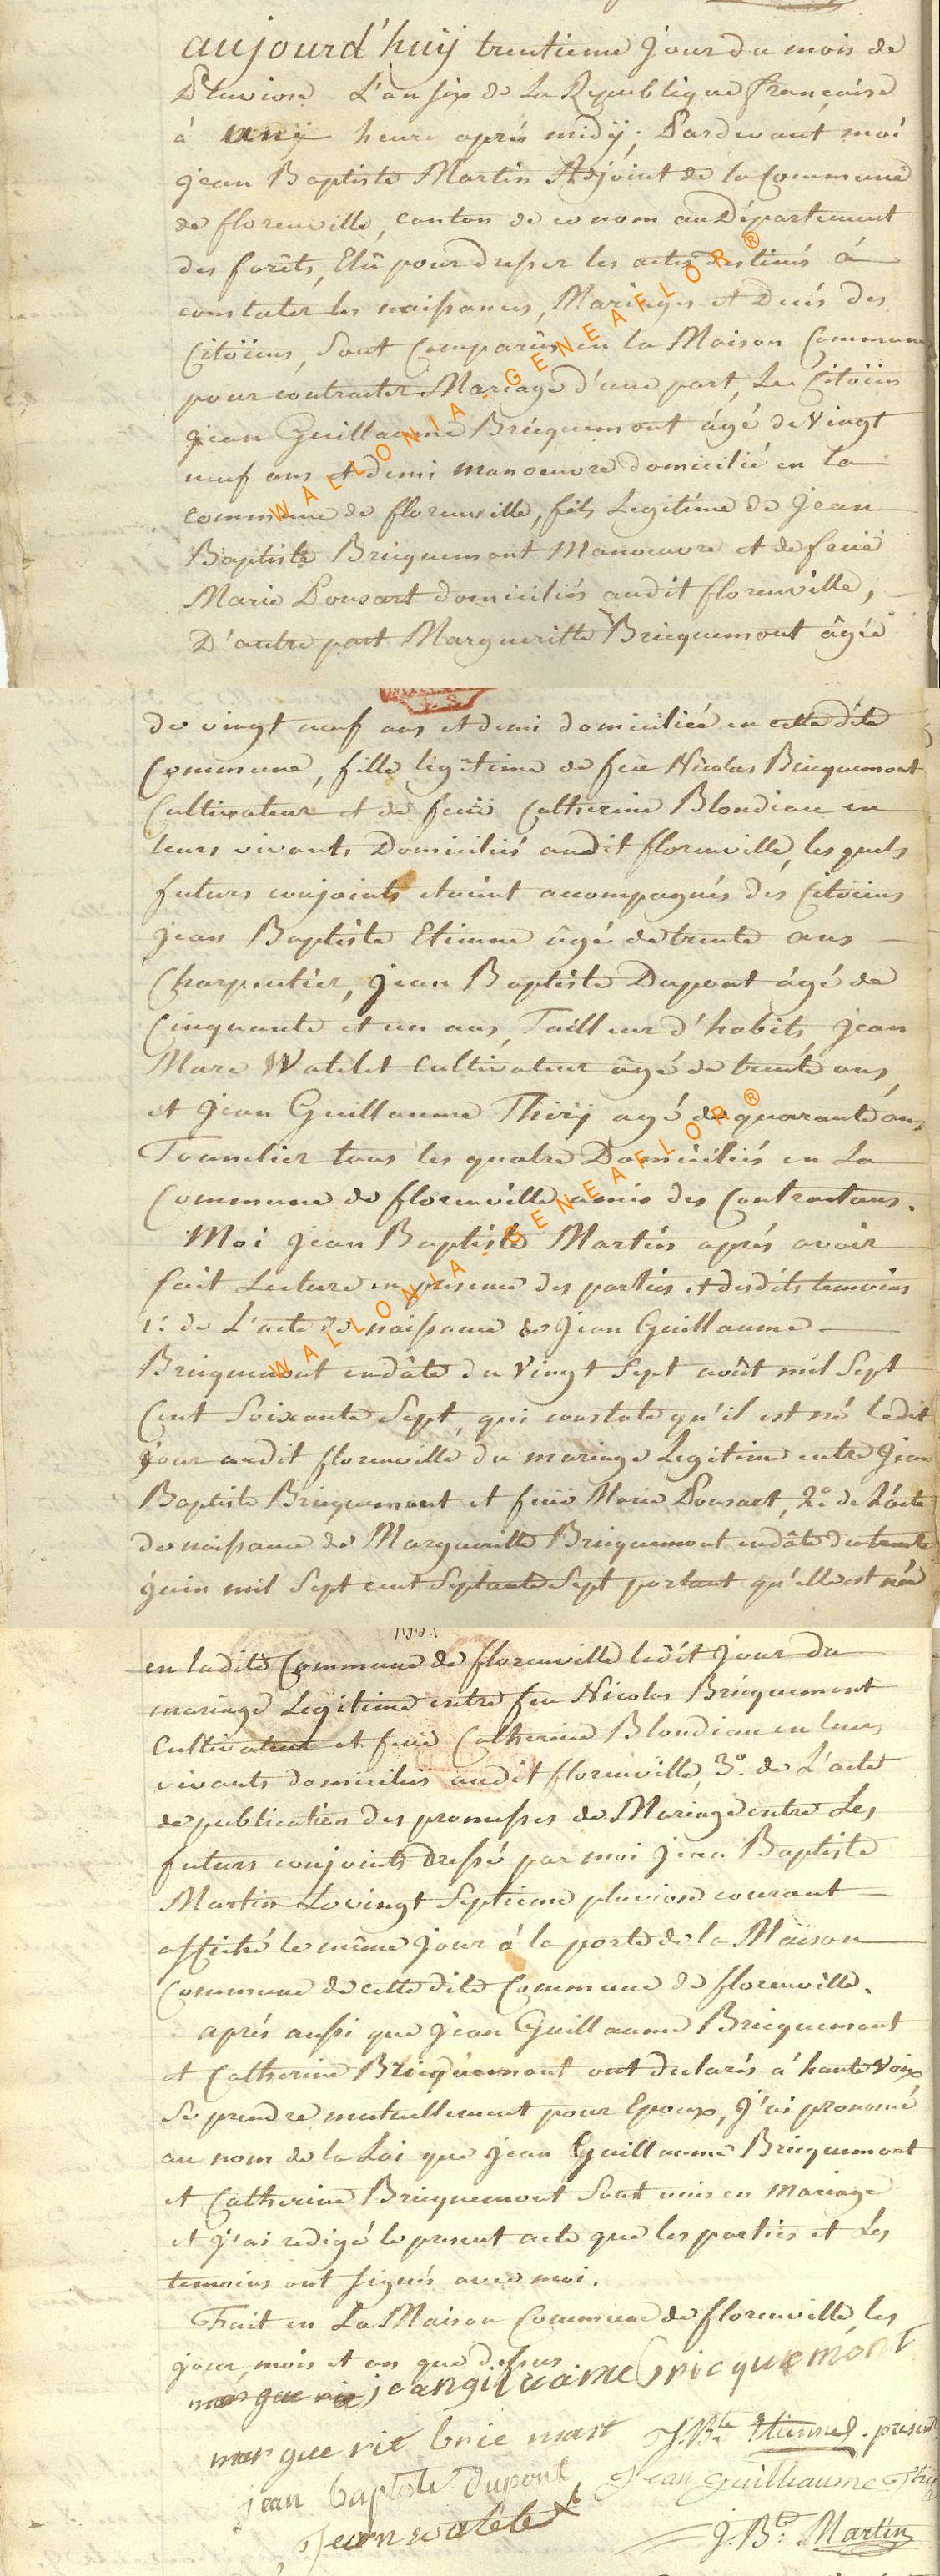 aujourd'huÿ trentieme jour du mois de
Pluviose L'an six de La Republique françaisse
à une heure aprés midÿ, Pardevant moi
jean Baptiste Martin Adjoint de la Commune
de florenville, canton de ce nom au Département
des forêts, Elû pour dresser les actes destinés á
constater les naissances, Mariages et Decés des
Citoïens, Sont Comparûs en la Maison Commune
pour contracter Mariage d'une part, Le Citoïen
jean Guillaume Bricquemont âgé de Vingt
neuf ans et demi manoeuvre domicilié en la
commune de florenville, fils Legitime de Jean
Baptiste Bricquemont Manoeuvre et de feüe
Marie Ponsart domiciliés audit florenville,
D'autre part Margueritte Bricquemont âgée
de vingt neuf ans et demi domiciliée en cette dite
Commune, fille legitime de feu Nicolas Bricquemont
Cultivateur et de feüe Catherine Blondiau en
leurs vivants Domiciliés audit florenville, lesquels
futurs conjoints etoient accompagnés des Citoïens
jean Baptiste Etienne âgé de trente ans
Charpentier, jean Baptiste Dupont âgé de
Cinquante et un ans, Tailleur d'habits, jean
Marc Watelet Cultivateur âgé de trente ans,
et Jean Guillaume Thirÿ agé de quarante ans,
Tonnelier tous les quatre Domiciliés en La
Commune de florenville amis des Contractans.
Moi Jean Baptiste Martin aprés avoir
fait Lecture en presence des parties et desdits temoins
1: de L'acte de naissance de Jean Guillaume
Bricquemont endâte du Vingt Sept août mil Sept
Cent Soixante Sept, qui constate qu'il est né ledit
jour audit florenville du mariage Legitime entre Jean
Baptiste Bricquemont et feüe Marie Ponsart, 2° de L'acte
de naissance de Margueritte Bricquemont endâte du trente
juin mil Sept cent Septante Sept portant qu'elle est née
en ladite Commune de florenville ledit Jour du
mariage Legitime entre feu Nicolas Bricquemont
Cultivateur et feüe Catherine Blondiau en leurs
vivants domiciliés audit florenville, 3° de L'acte
de publication des promesses de Mariage entre Les
futurs conjoints dressé par moi jean Baptiste
Martin Le vingt Septieme pluviose courant
affiché le même jour à la porte de la Maison
Commune de cette dite Commune de florenville.
aprés aussi que Jean Guillaume Bricquemont
et Catherine Bricquemont ont declarés á haute Voix
Se prendre mutuellement pour Epoux, J'ai prononcé
au nom de la Loi que Jean Guillaume Bricquemont
et Catherine Bricquemont Sont unis en Mariage
et j'ai redigé le present acte que les parties et Les
temoins ont signés avec moi.
Fait en La Maison Commune de florenville les
jour, mois et an que dessus
jeangiluaime bricquemont
mar gue rit bric mant J. Bte Etienne. present
jean baptiste dupont Jean guilleaume Thiry
Jean watelet
J. Bte: Martin
WALLONIA - GENEAFLOR ®
WALLONIA - GENEAFLOR ®